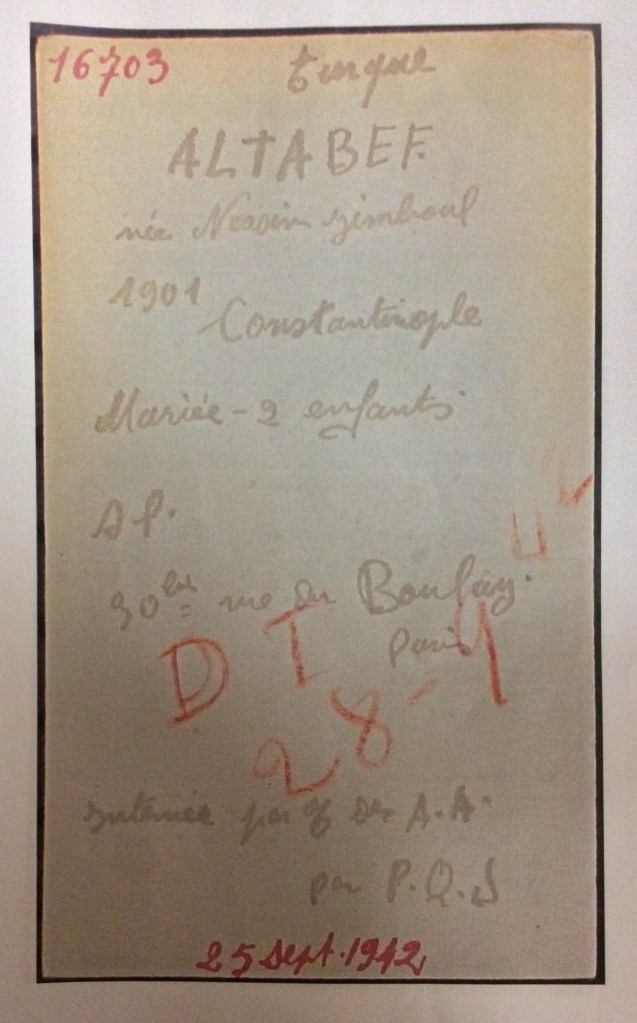 16703
turque
ALTABEF.
née Nessim Simboul
1901
Constantinople
Mariée - 2 enfants.
S P.
30 bis rue du Boulay.
Paris
D I
28-9 42
Internée par O des A.A.
par P.Q.J
25 Sept. 1942